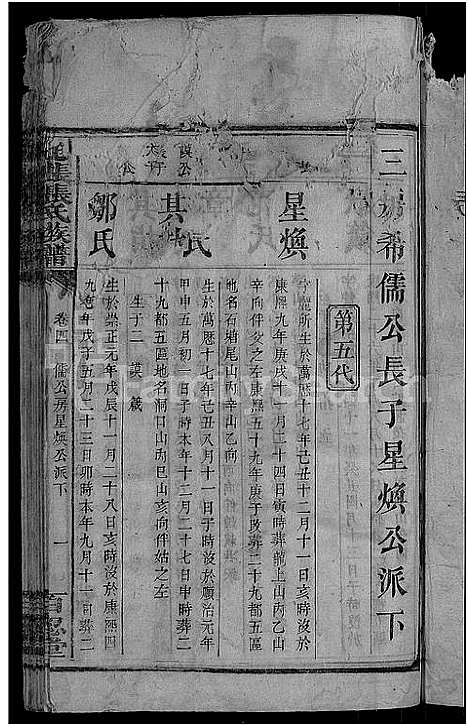 三 希儒公長子星煥公派下
第五代
星煥
字 所生於萬曆十七年己丑十二月十一日亥時沒於
康熙九年庚戌十一月二十四日寅時葬龍上山丙乙山
辛向伴父之左康熙五十九年庚子改葬二十九都五區
地名石 尾山丙辛山乙向
氏
生於萬曆十七年己丑八月十一日子時沒於順治元年
甲申五月初一日子時本年十二月二十七日申時葬二
十九都五區地名洞口山丙巳山亥向伴姑之左
生子二
其
鄒氏
生於崇正元年戊辰十一月二十八日亥時沒於康熙四
九 年戊子五月二十三日卯時本年九月十一日葬二
張氏族譜
卷四
儒公房星煥公派下
一
百忍堂